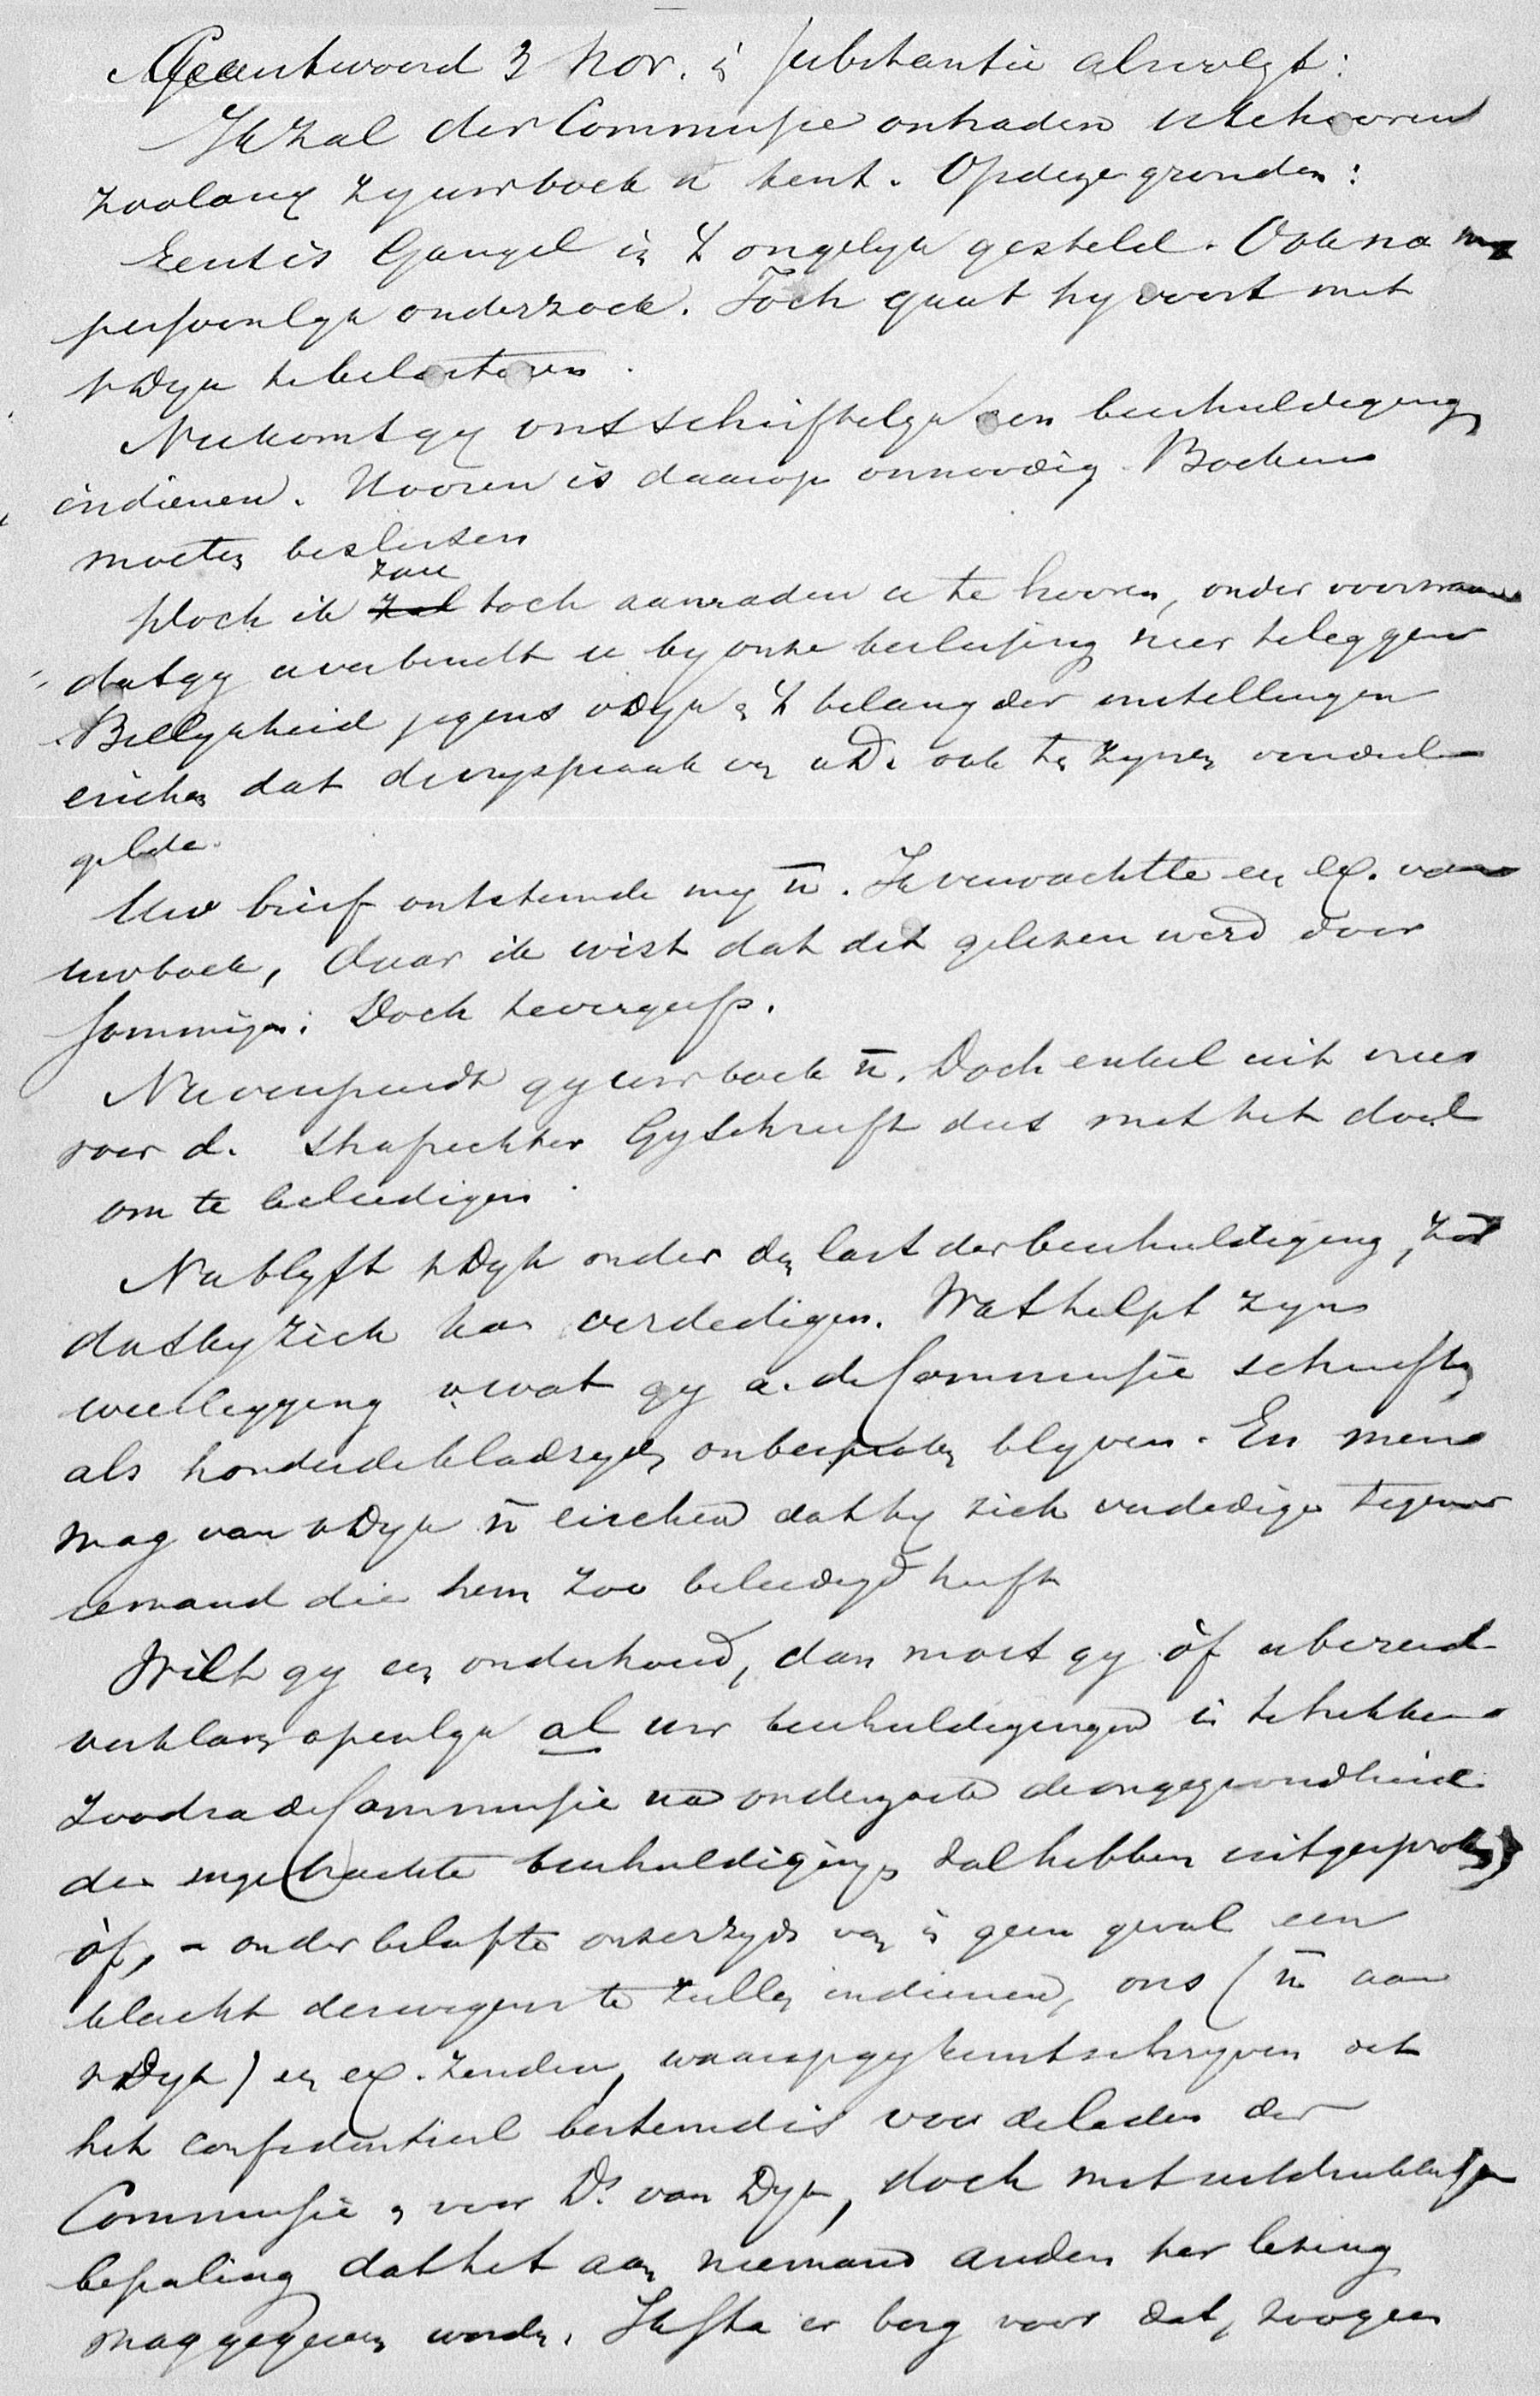 Geantwoord 3 Nov. in substantie alsvolgt:
Ik zal der Commissie ontraden u te hooren
zoolang zy uw boek n̄ kent. Op deze gronden:
Eerst is Gangel in 't ongelyk gesteld. Ook na
persoonlyk onderzoek. Toch gaat hy voort met
v Dyk te belasteren.
Nu komt gy ons schriftelyk een beschuldiging
indienen. Hooren is daarop onnoodig. Boeken
moeten beslissen
Doch ik zou toch aanraden u te hooren, onder voorwaarde
dat gy u verbindt u by onze beslissing neer te leggen
Billykheid jegens v Dyk en 't belang der instellingen
eischen dat de vryspraak van v D. ook te zynen voordeele
gelde.
Uw brief ontstemde my n̄. Ik verwachtte een ex. van
uw boek, daar ik wist dat dit gelezen werd door
sommigen. Doch tevergeefs.
Nu verspreidt gy uw boek n̄. Doch enkel uit vrees
voor d. strafrechter Gy schreeft dus met het doel
om te beleedigen.
Nu blyft v Dyk onder den last der beschuldiging, zonder
dat hy zich kan verdedigen. Wat helpt zyne
weerlegging v. wat gy a. de Commissie schreeft,
als honderde bladzyden onbesproken blyven. En men
mag van v Dyk n̄ eischen dat hy zich verdedige tegenover
iemand die hem zoo beleedigd heeft
Wilt gy een onderhoud, dan moet gy òf u bereid
verklaren openlyk al uw beschuldigingen in te trekken
zoodra de Commissie na onderzoek de ongegrondheid
der ingebrachte beschuldigingen zal hebben uitgesproken,
òf, - onder belofte onzerzyds van in geen geval een
klacht deswegens te zullen indienen, ons (n̄ aan
v Dyk) een ex. zenden, waarop gy kunt schryven dat
het confidentieel bestemd is voor de leden der
Commissie en voor Dr. van Dyk, doch met uitdrukkelyke
bepaling dat het aan niemand anders ter lezing
mag gegeven worden. Ik sta er borg voor dat, zoo geen